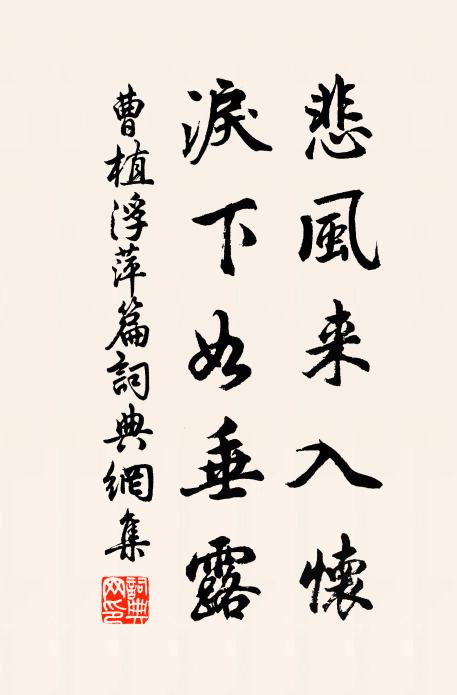 悲風来入懷
淚下如垂露
曹植浮萍篇詞典網集
詞典網印